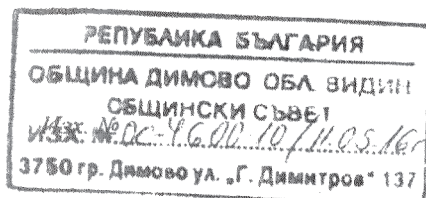 РЕПУБЛИКА БЪЛГАРИЯ
ОБЩИНА ДИМОВО ОБЛ. ВИДИН
ОБЩИНСКИ СЪВЕТ
ИЗХ. № ОС-4600-10/11.05.16г
3750 гр. Димово ул. „Г. Димитров“ 137